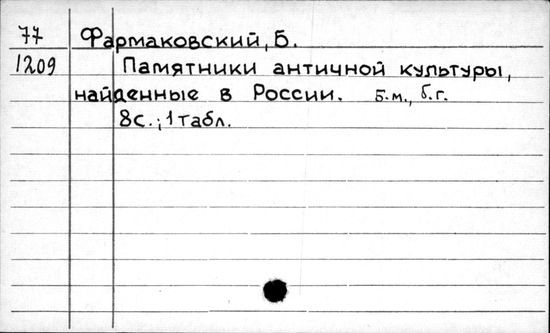 77 Фармаковский, Б.
1209 Памятники античной культуры,
найденные в России. Б.м., б.г.
8с.; 1 табл.